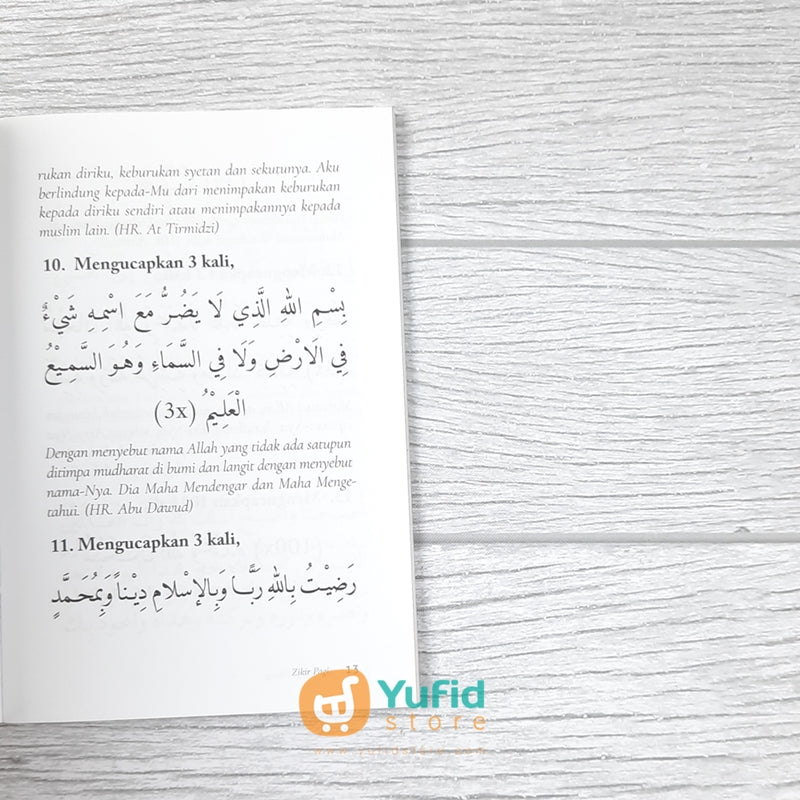 rukan diriku, keburukan syetan dan sekutunya. Aku
berlindung kepada-Mu dari menimpakan keburukan
kepada diriku sendiri atau menimpakannya kepada
muslim lain. (HR. At Tirmidzi)
10. Mengucapkan 3 kali,
بِسْمِ اللهِ الَّذِي لَا يَضُرُّ مَعَ اسْمِهِ شَيْءٌ
فِي الْاَرْضِ وَلَا فِي السَّمَاءِ وَهُوَ السَّمِيْعُ
الْعَلِيْمُ (3x)
Dengan menyebut nama Allah yang tidak ada satupun
ditimpa mudharat di bumi dan langit dengan menyebut
nama-Nya. Dia Maha Mendengar dan Maha Menge-
tahui. (HR. Abu Dawud)
11. Mengucapkan 3 kali,
رَضِيْتُ بِاللهِ رَبًّا وَبِالإِسْلَامِ دِيْناً وَبِمُحَمَّدٍ
Zikir Pagi 13
Yufid
store
www.yufidstore.com